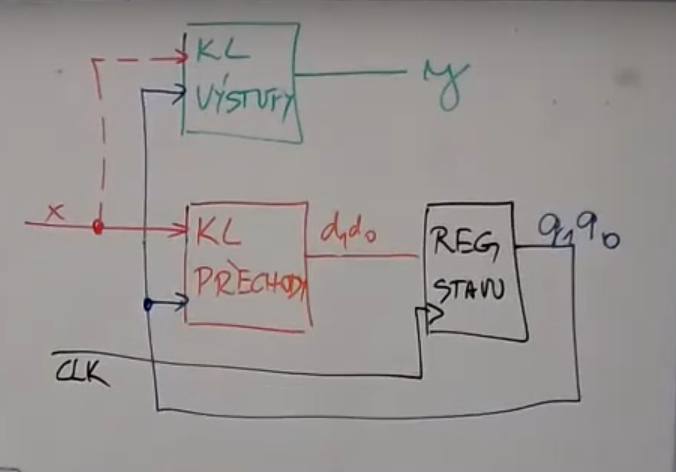 KL
VÝSTUPY
y
x
KL
PŘECHODY
d₁d₀
REG
STAVU
q₁q₀
CLK